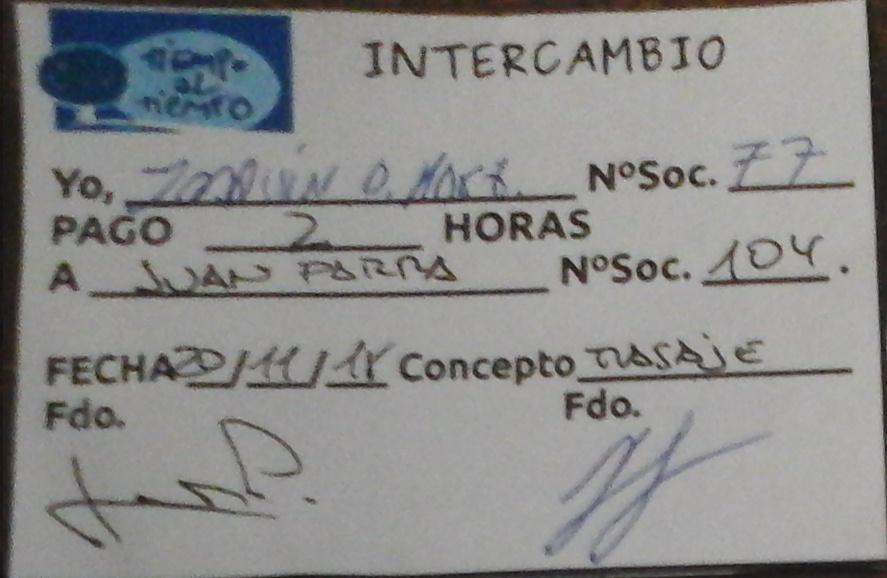 tiempo
al
tiempo
INTERCAMBIO
Yo, Joaquín NºSoc. 77
PAGO 2 HORAS
A JUAN PARRA NºSoc. 104.
FECHA 20/11/18 Concepto MASAJE
Fdo. Fdo.